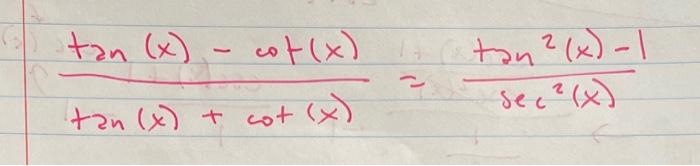 tan(x) - cot(x) / tan(x) + cot(x) = tan²(x) - 1 / sec²(x)